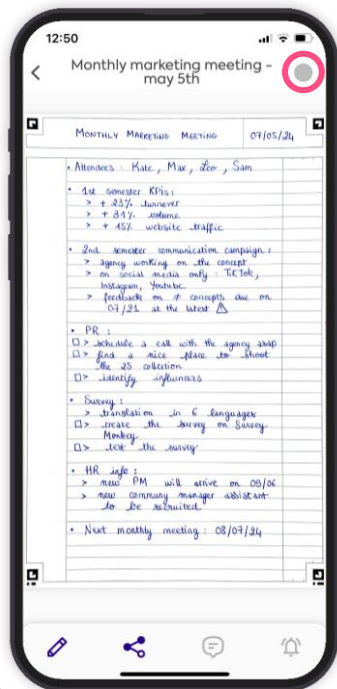 12:50
Monthly marketing meeting -
may 5th
MONTHLY MARKETING MEETING 07/05/24
• Attendees : Kate, Max, Leo, Sam
• 1st semester KPIs :
> + 23% turnover
> + 31% volume
> + 15% website traffic
• 2nd semester communication campaign :
> agency working on the concept
> on social media only : TikTok,
Instagram, Youtube
> feedback on ≠ concepts due on
07/21 at the latest ⚠
• PR :
□> schedule a call with the agency asap
□> find a nice place to shoot
the 25 collection
□> identify influencers
• Survey :
> translation in 6 languages
□> create the survey on Survey
Monkey
□> test the survey
• HR info :
> new PM will arrive on 09/06
> new community manager assistant
to be recruited
• Next monthly meeting : 08/07/24